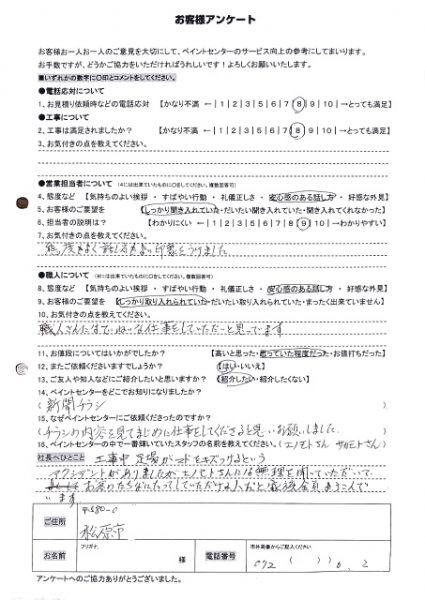 お客様アンケート
お客様お一人お一人のご意見を大切にして、ペイントセンターのサービス向上の参考にしてまいります。
お手数ですが、どうかご協力をいただければうれしいです！よろしくお願いいたします。
■いずれかの数字に○印とコメントをしてください。
●電話応対について
1、お見積り依頼時などの電話応対 【かなり不満 ←|1|2|3|5|6|7|8|9|10|→とっても満足】
●工事について
2、工事は満足されましたか？ 【かなり不満 ←|1|2|3|5|6|7|8|9|10|→とっても満足】
3、お気付きの点を教えてください。
●営業担当者について （4には出来ていたものに○をしてください。複数回答可）
4、態度など 【気持ちのよい挨拶 ・ すばやい行動 ・ 礼儀正しさ ・ 安心感のある話し方 ・ 好感な外見】
5、お客様のご要望を 【しっかり聞き入れていた・だいたい聞き入れていた・聞き入れてくれなかった】
6、担当者の説明は？ 【わかりにくい ←|1|2|3|5|6|7|8|9|10|→わかりやすい】
7、お気付きの点を教えてください。
態度もよく 話し方も 印象をうけました
●職人について （8には出来ていたものに○をしてください。複数回答可）
8、態度など 【気持ちのよい挨拶 ・ すばやい行動 ・ 礼儀正しさ ・ 安心感のある話し方 ・ 好感な外見】
9、お客様のご要望を 【しっかり取り入れられていた・だいたい取り入れられていた・まったく出来ていません】
10、お気付きの点を教えてください。
職人さんはていねいな仕事をしていただいたと思っています
11、お値段についてはいかがでしたか？ 【高いと思った・思っていた程度だった・お値打ちだった】
12、またご依頼くださいますでしょうか？ 【はい・いいえ】
13、ご友人や知人などにご紹介したいと思いますか？ 【紹介したい・紹介したくない】
14、ペイントセンターをどこでお知りになりましたか？
（新聞チラシ
15、なぜペイントセンターにご依頼くださったのですか？
（チラシの内容を見てまじめに仕事をしてくださると思いお願いしました
16、ペイントセンターの中で一番輝いていたスタッフの名前を教えてください。（エノモトさん サカモトさん）
社長へひとこと 工事中 足場が マドをキズつけるという
アクシデントがありましたがエノモトさんには無理を聞いていただいて
お客のたちばにたってしていただける人だと家族全員よろこんで
います
ご住所 〒580-0
松原市
フリガナ
お名前 様 電話番号 市外局番からご記入ください
072 ( )
アンケートへのご協力ありがとうございました。